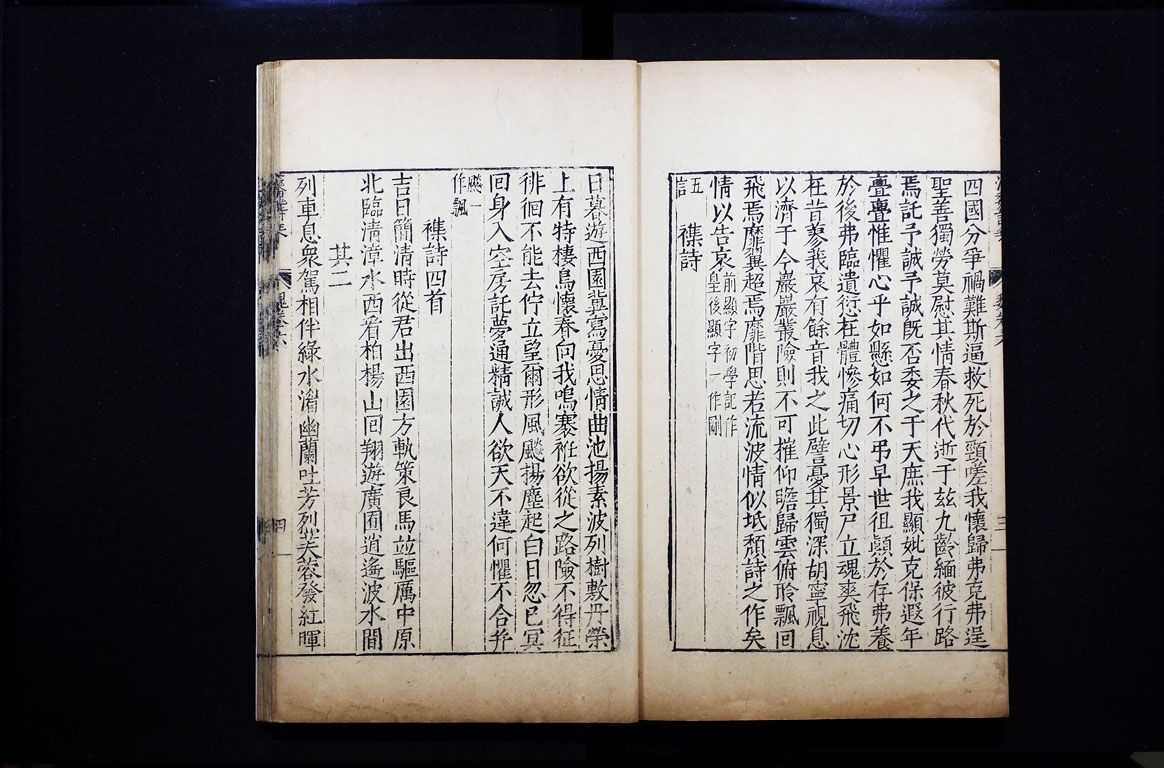 四國分爭禍難斯逼救死於頸嗟我懷歸弗克弗逞
聖善獨勞莫慰其情春秋代逝于兹九齡緬彼行路
焉託予誠予誠旣否委之于天庶我顯妣克保遐年
亹亹惟懼心乎如懸如何不弔早世徂顚於存弗養
於後弗臨遺愆在體慘痛切心形景尸立魂爽飛沈
在昔蓼莪哀有餘音我之此譬憂其獨深胡寧視息
以濟于今巖巖叢險則不可摧仰瞻歸雲俯聆飄回
飛焉靡翼超焉靡階思若流波情似坻頽詩之作矣
情以告哀前顯字初學記作
皇後顯字一作剛
五
言
襍詩
日暮遊西園冀寫憂思情曲池揚素波列樹敷丹榮
上有特棲鳥懷春向我鳴褰衽欲從之路險不得征
徘徊不能去佇立望爾形風飈揚塵起白日忽已冥
回身入空房託夢通精誠人欲天不違何懼不合幷
飈一
作飄
襍詩四首
吉日簡清時從君出西園方軌策良馬竝驅厲中原
北臨清漳水西看柏楊山回翔遊廣囿逍遙波水間
其二
列車息衆駕相伴綠水湄幽蘭吐芳烈芙蓉發紅暉
四